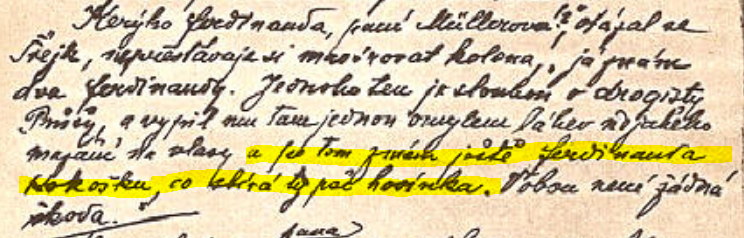 Kerýho Ferdinanda, paní Müllerová?", otázal se
Švejk, nepřestávaje si masírovat kolena, „já znám
dva Ferdinandy. Jednoho ten je sloužem u drogisty
Průšy, a vypil mu tam jednou omylem láhev nějakého
mazání na vlasy a po tom znám ještě Ferdinanda
Kokošku, co sbírá ty psí hovínka. Vobou není žádná
škoda."